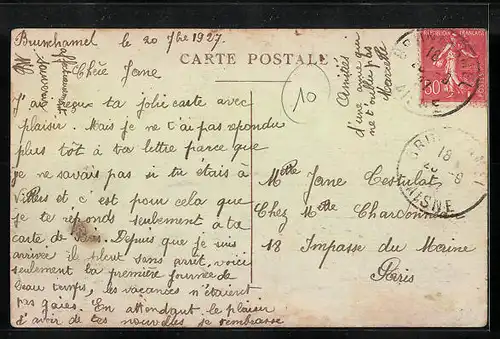 le 20 7bre 1927.
CARTE POSTALE
Chère Jane
J'ai reçu ta jolie carte avec
plaisir. Mais je ne t'ai pas répondu
plus tôt à ta lettre parce que
je ne savais pas si tu étais à
et c'est pour cela que
je te réponds seulement à ta
carte de Paris. Depuis que je suis
arrivée il pleut sans arrêt, voici
seulement la première journée de
beau temps, les vacances n'étaient
pas gaies. En attendant le plaisir
d'avoir de tes nouvelles je t'embrasse
affectueusement
Amitiés
d'une amie qui
ne t'oublie pas
10
Melle Jane
Chez Mme
18 Impasse du Maine
Paris
RÉPUBLIQUE FRANÇAISE
50c
18
AISNE